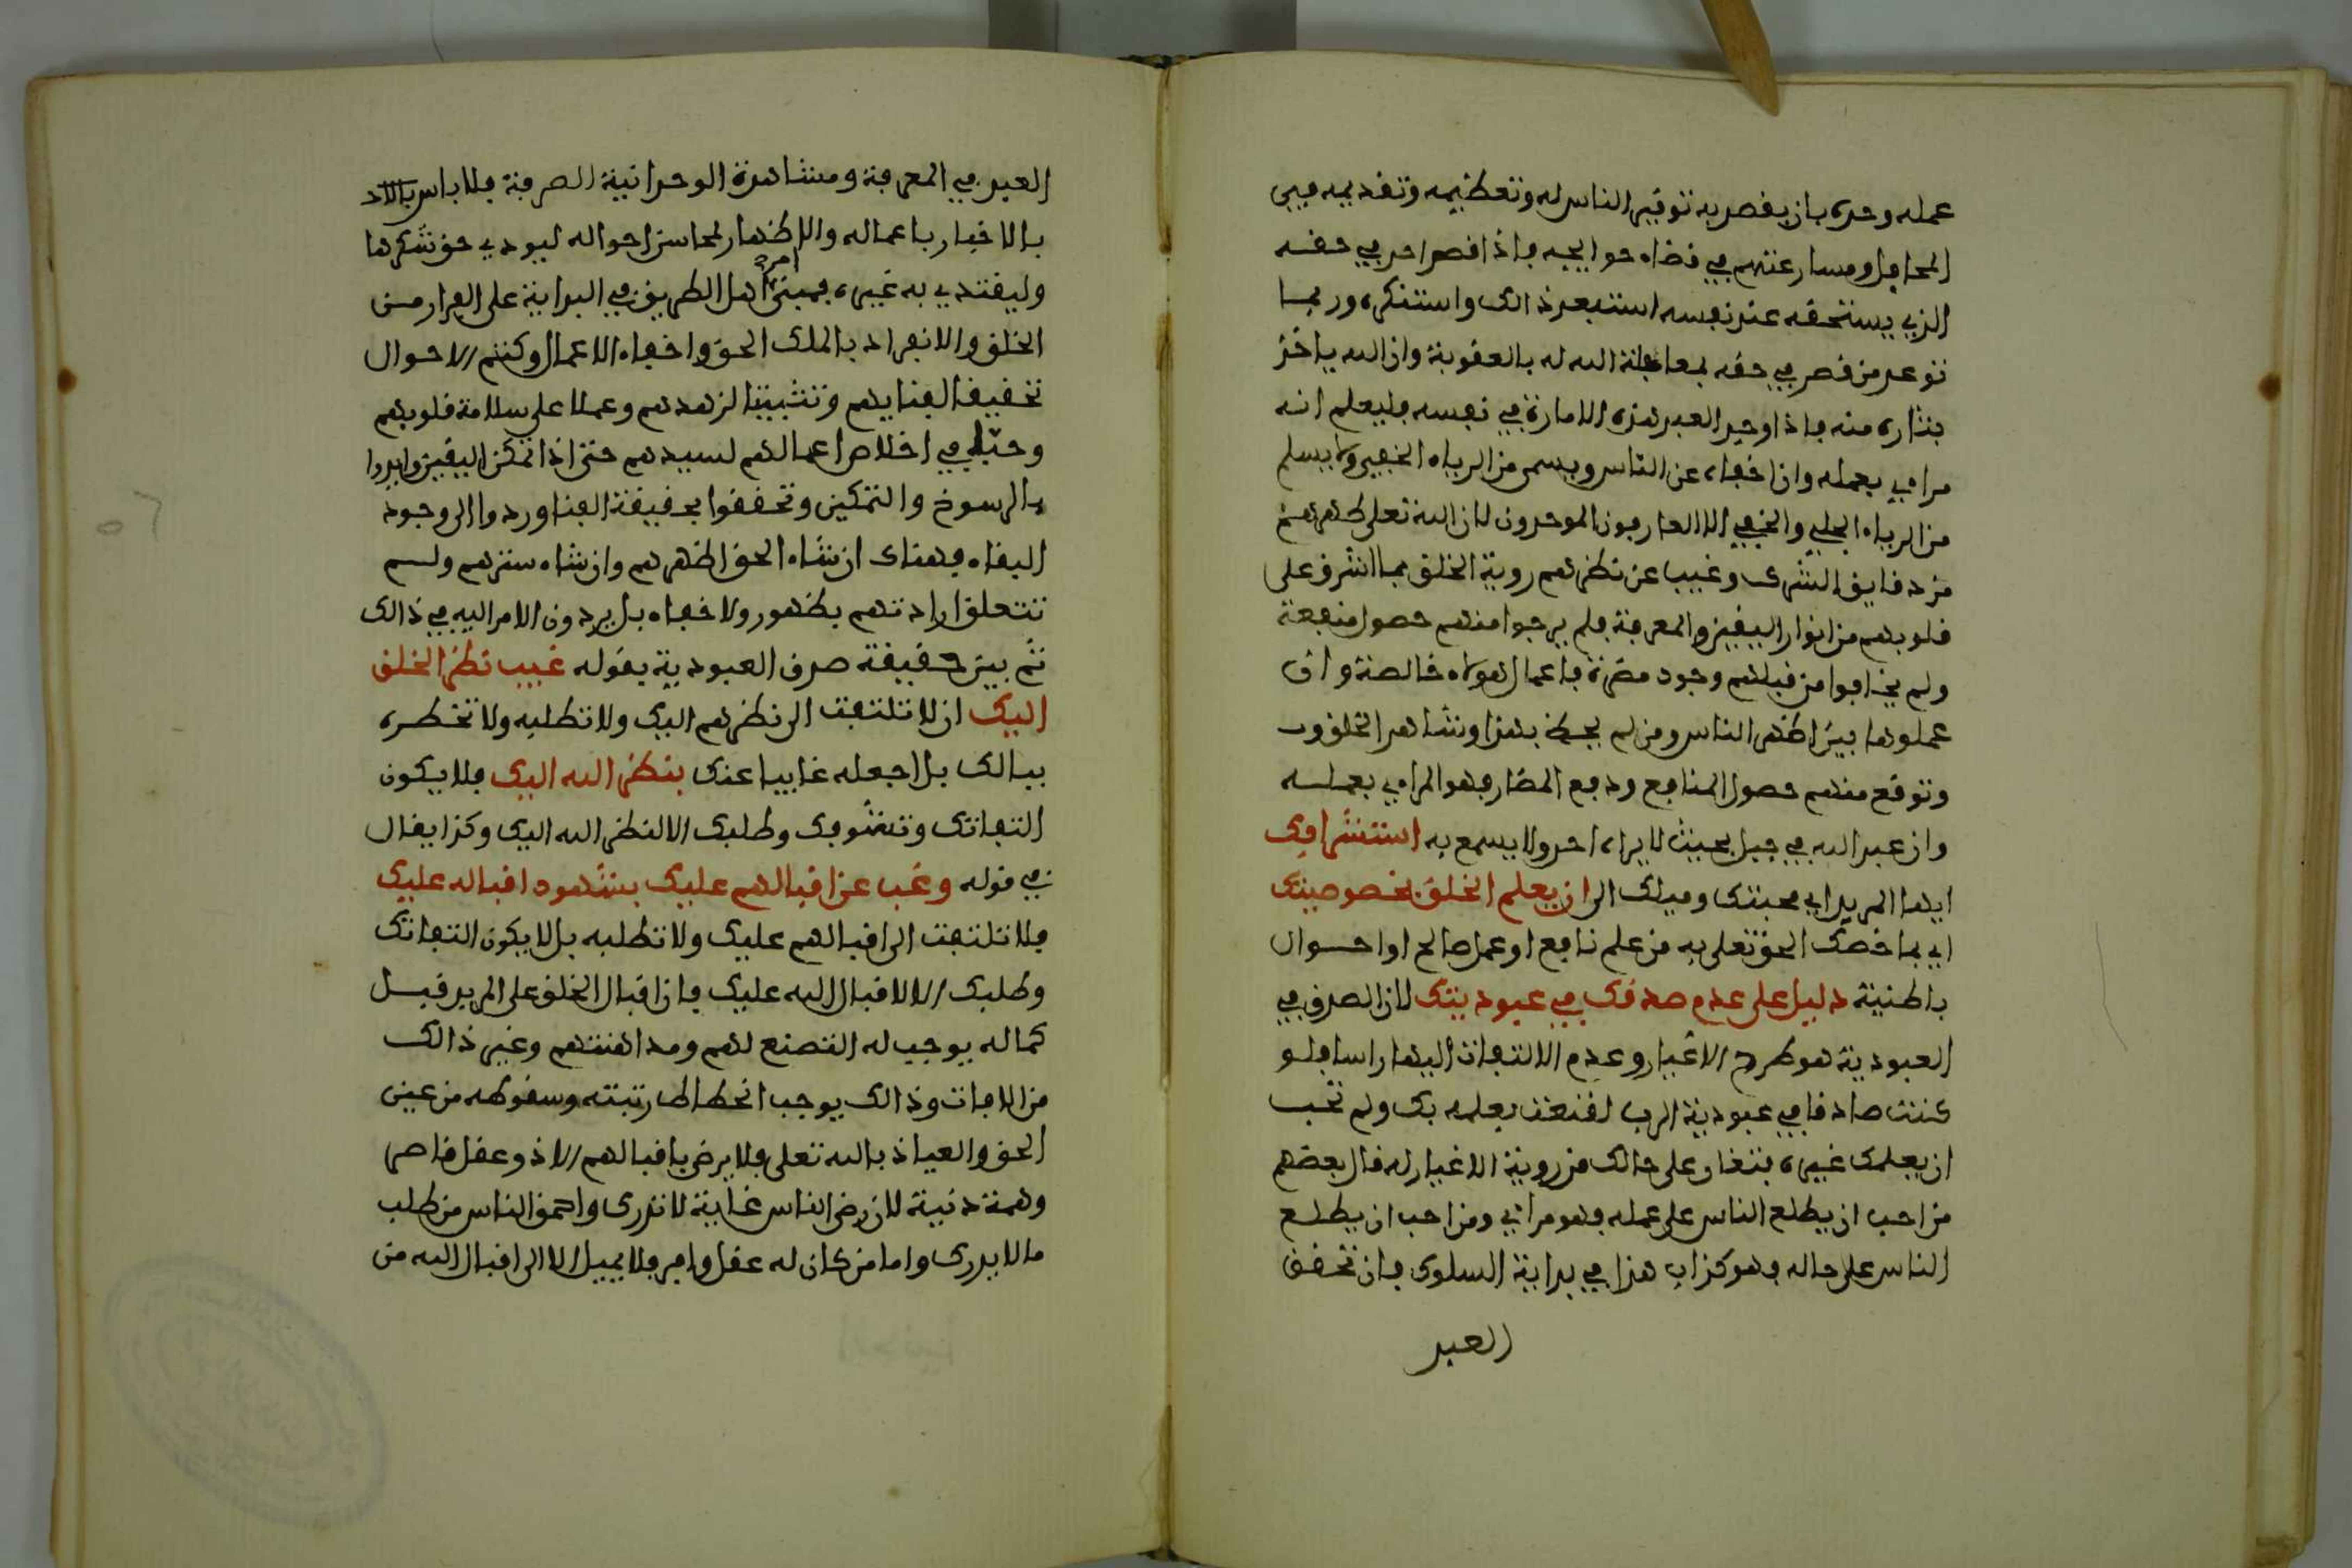 عمله وحده بان يقصد به توقير الناس له وتعظيمه وتقديمه في
المحافل ومسارعتهم في قضاء حوايجه فاذا قصر احد في حقه
الذي يستحقه عند نفسه استبعد ذالك واستنكره وربما
توعد من قصر في حقه بمعاجلة الله له بالعقوبة وان الله ياخذ
بثاره منه فاذا وجد العبد هذه الامارة في نفسه فليعلم انه
مراءي بعمله وان اخفاه عن الناس ويسمى من الرياء الخفي ولا يسلم
من الرياء الجلي والخفي الا العارفون الموحدون لان الله تعلى طهرهم
من دقايق الشرك وغيب عن نظرهم روية الخلق بما اشرق على
قلوبهم من انوار اليقين والمعرفة فلم يرجوا منهم حصول منفعة
ولم يخافوا من قبلهم وجود مضرة فاعمال هولاء خالصة وان
عملوها بين اظهر الناس ومن لم يحظ بهذا وشاهد الخلق
وتوقع منهم حصول المنافع ودفع المضار فهو المراءي بعمله
وان عبد الله في جبل بحيث لا يراه احد ولا يسمع به استشرافك
ايها المريد اي محبتك وميلك الى ان يعلم الخلق بخصوصيتك
اي بما خصك الحق تعلى به من علم نافع او عمل صالح او احوال
باطنية دليل على عدم صدقك في عبوديتك لان الصدق في
العبودية هو طرح الاغيار وعدم الالتفات اليها راسا فلو
كنت صادقا في عبودية الرب لقنعت بعلمه بك ولم تحب
ان يعلمك غيره فتغار على حالك من روية الاغيار له قال بعضهم
من احب ان يطلع الناس على عمله فهو مراءي ومن احب ان يطلع
الناس على حاله فهو كذاب هذا في بداية السلوك فان تحقق
العبد
العبد في المعرفة ومشاهدة الوحدانية الصرفة فلا باس
بالاخبار باعماله والاظهار لمحاسن احواله ليودي حق شكرها
وليقتدي به غيره فمبنى امر اهل الطريق في البداية على الفرار من
الخلق والانفراد بالملك الحق واخفاء الاعمال وكتم الاحوال
تحقيقا لفنايهم وتثبيتا لزهدهم وعملا على سلامة قلوبهم
وحبا في اخلاص اعمالهم لسيدهم حتى اذا تمكن اليقين وايدوا
بالرسوخ والتمكين وتحققوا بحقيقة الفنا وردوا الى وجود
البقاء فهناك ان شاء الحق اظهرهم وان شاء سترهم ولم
تتعلق ارادتهم بظهور ولا خفاء بل يردون الامر اليه في ذالك
ثم بين حقيقة صرف العبودية بقوله غيب نظر الخلق
اليك ان لا تلتفت الى نظرهم اليك ولا تطلبه ولا تخطره
ببالك بل اجعله غايبا عنك بنظر الله اليك فلا يكون
التفاتك وتشوفك وطلبك الا لنظر الله اليك وكذا يقال
في قوله وغب عن اقبالهم عليك بشهود اقباله عليك
فلا تلتفت الى اقبالهم عليك ولا تطلبه بل لا يكون التفاتك
وطلبك الا لاقبال الله عليك فان اقبال الخلق على المريد قبل
كماله يوجب له التصنع لهم ومداهنتهم وغير ذالك
من الافات وذالك يوجب انحطاط رتبته وسقوطه من عين
الحق والعياذ بالله تعلى فلا يرضى باقبالهم الا ذو عقل قاصر
وهمة دنية لان رضى الناس غاية لا تدرك واحمق الناس من طلب
ما لا يدرك واما من كان له عقل وافر فلا يميل الا الى اقبال الله من